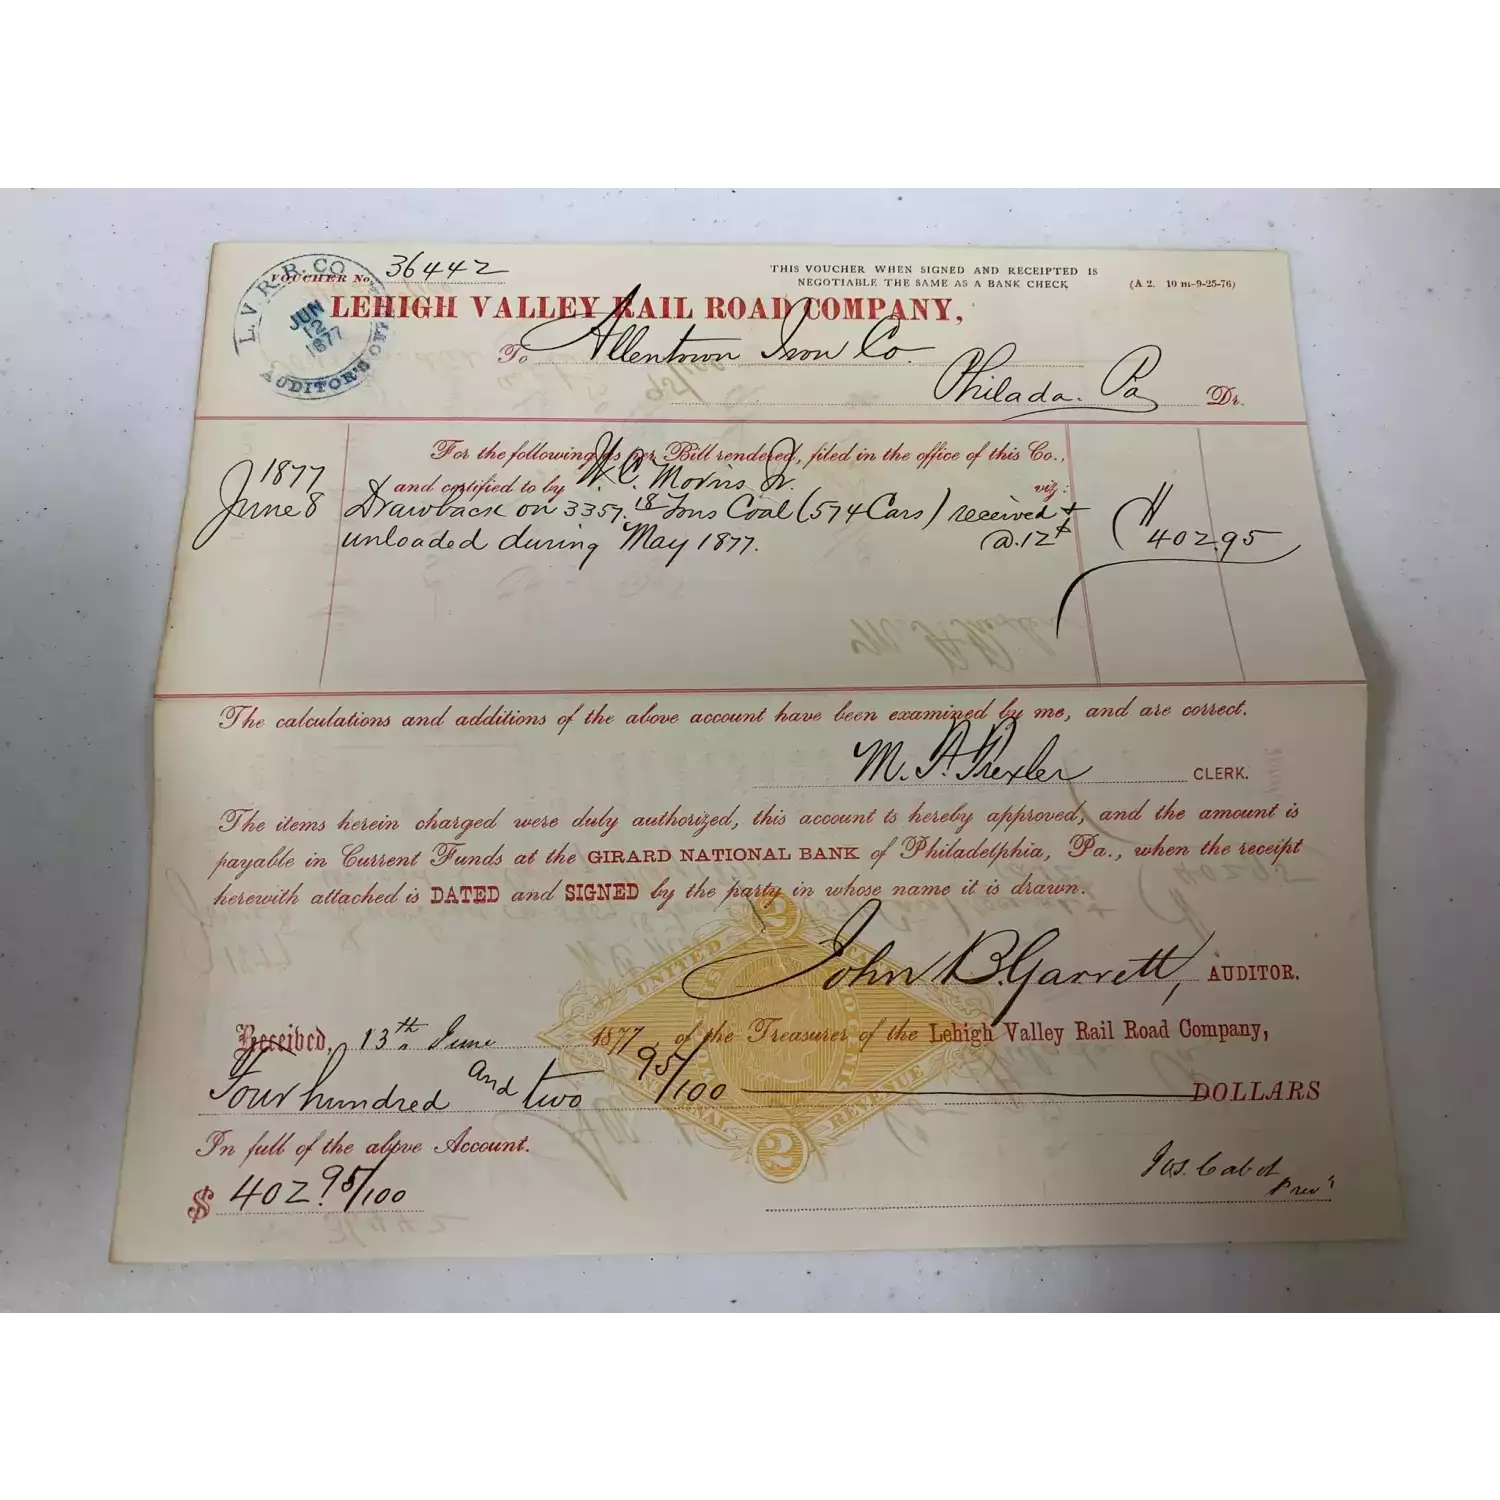 VOUCHER No. 36442
THIS VOUCHER WHEN SIGNED AND RECEIPTED IS
NEGOTIABLE THE SAME AS A BANK CHECK
(A 2. 10 m-9-25-76)
L. V. R. R. CO
JUN
12
1877
AUDITOR'S OFF
LEHIGH VALLEY RAIL ROAD COMPANY,
To Allentown Iron Co.
Philada. Pa Dr.
For the following as per Bill rendered, filed in the office of this Co.,
1877
and certified to by W. C. Morris Jr. viz:
June 8 Drawback on 3357.18 Tons Coal (574 Cars) received +
unloaded during May 1877. @.12¢ 402.95
The calculations and additions of the above account have been examined by me, and are correct.
M. A. Trexler CLERK.
The items herein charged were duly authorized, this account is hereby approved, and the amount is
payable in Current Funds at the GIRARD NATIONAL BANK of Philadelphia, Pa., when the receipt
herewith attached is DATED and SIGNED by the party in whose name it is drawn.
John B. Garrett, AUDITOR.
Received, 13th June 1877, of the Treasurer of the Lehigh Valley Rail Road Company,
Four hundred and two 95/100 DOLLARS
In full of the above Account.
$ 402.95/100
Jos. Cabot
Prest
2
UNITED STATES
INTERNAL REVENUE
2